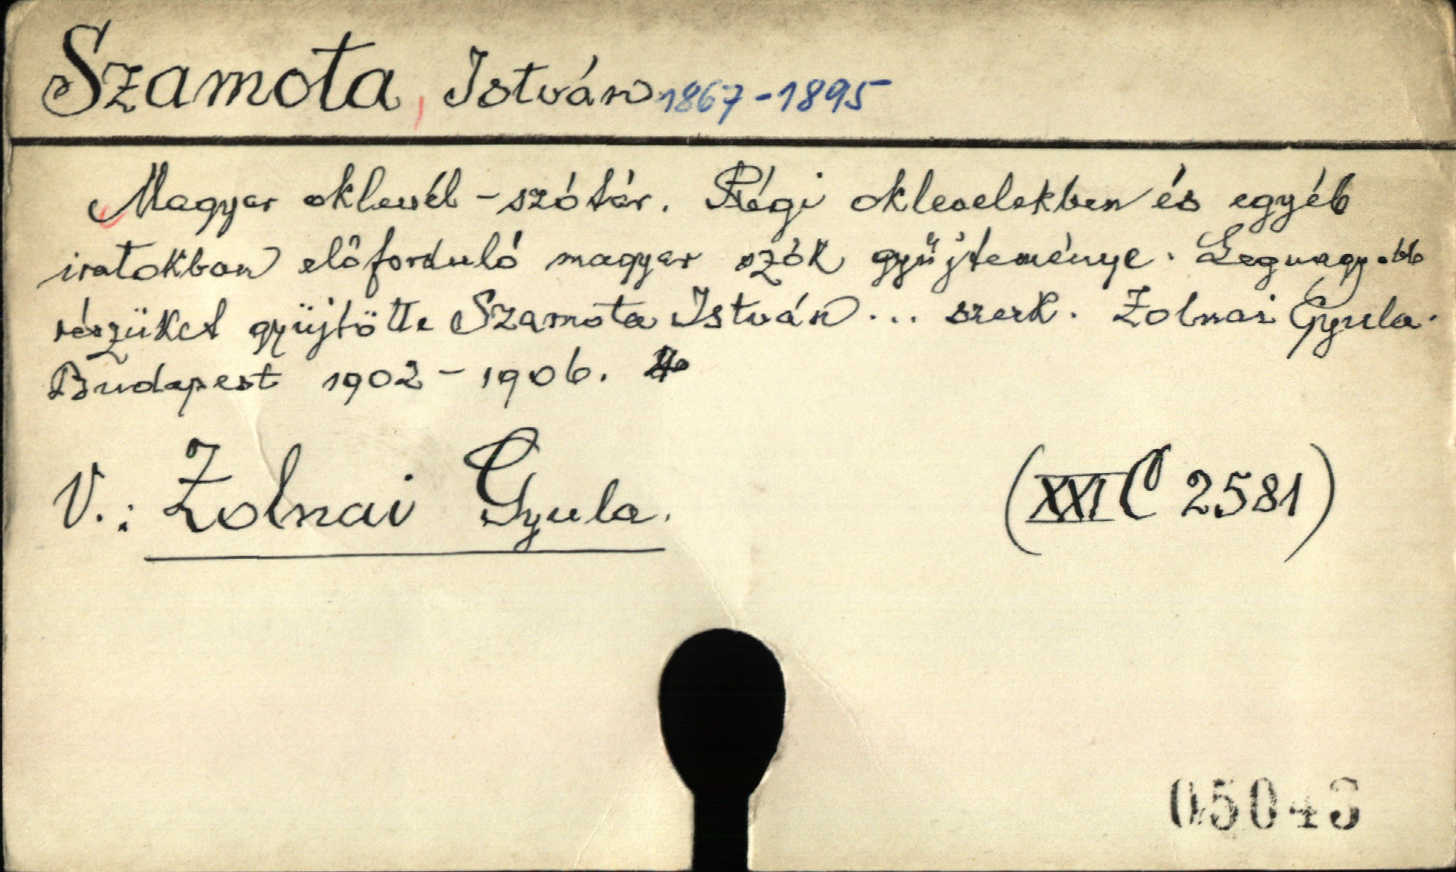 Szamota, István 1867-1895
Magyar oklevél-szótár. Régi oklevelekben és egyéb
iratokban előforduló magyar szók gyűjteménye. Legnagyobb
részüket gyüjtötte Szamota István... szerk. Zolnai Gyula.
Budapest 1902-1906.
V.: Zolnai Gyula.
(XXI C 2581)
05043